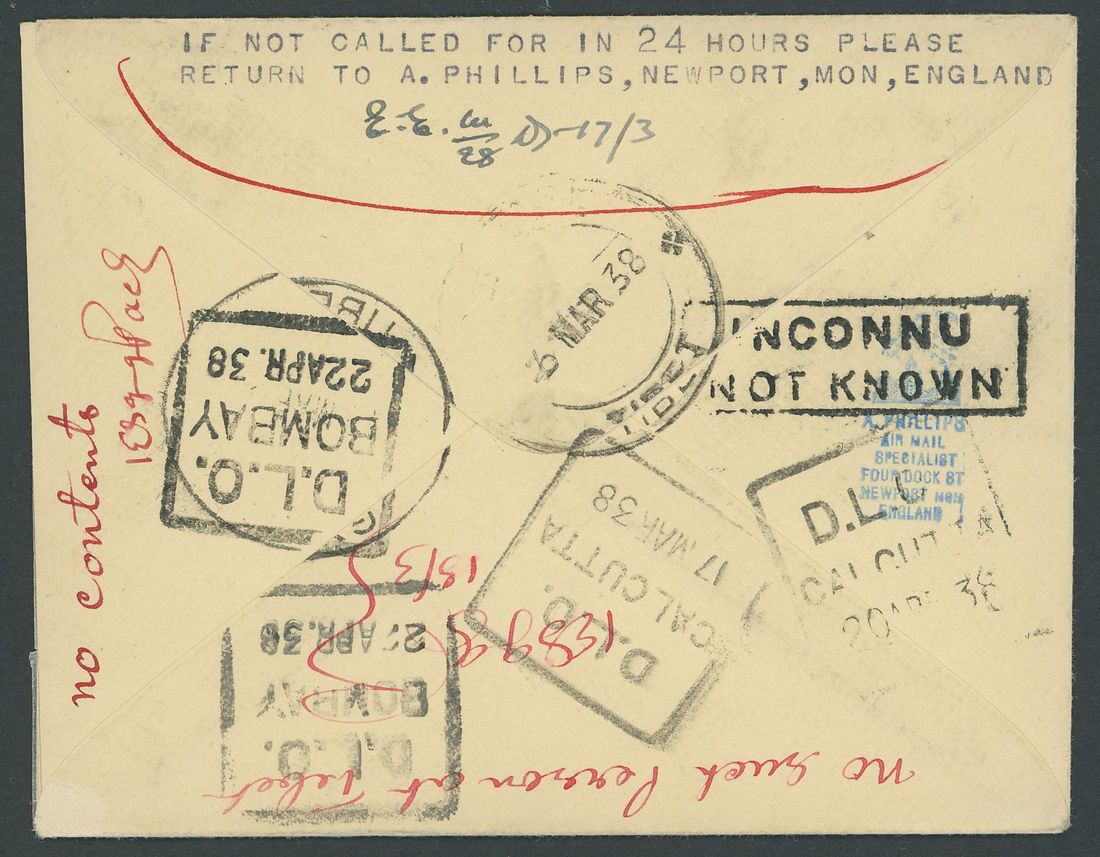 IF NOT CALLED FOR IN 24 HOURS PLEASE
RETURN TO A. PHILLIPS, NEWPORT, MON, ENGLAND
17/3
6 MAR 38
TIBET
INCONNU
NOT KNOWN
A. PHILLIPS
AIR MAIL
SPECIALIST
FOUR DOCK ST
NEWPORT MON
ENGLAND
TIBE
D.L.O.
BOMBAY
22 APR. 38
no contents
D.L.O.
CALCUTTA
17 MAR 38
D.L.O
CALCUTTA
20 APR 38
18/3
D.L.O.
BOMBAY
22 APR. 38
no such Person at Tibet